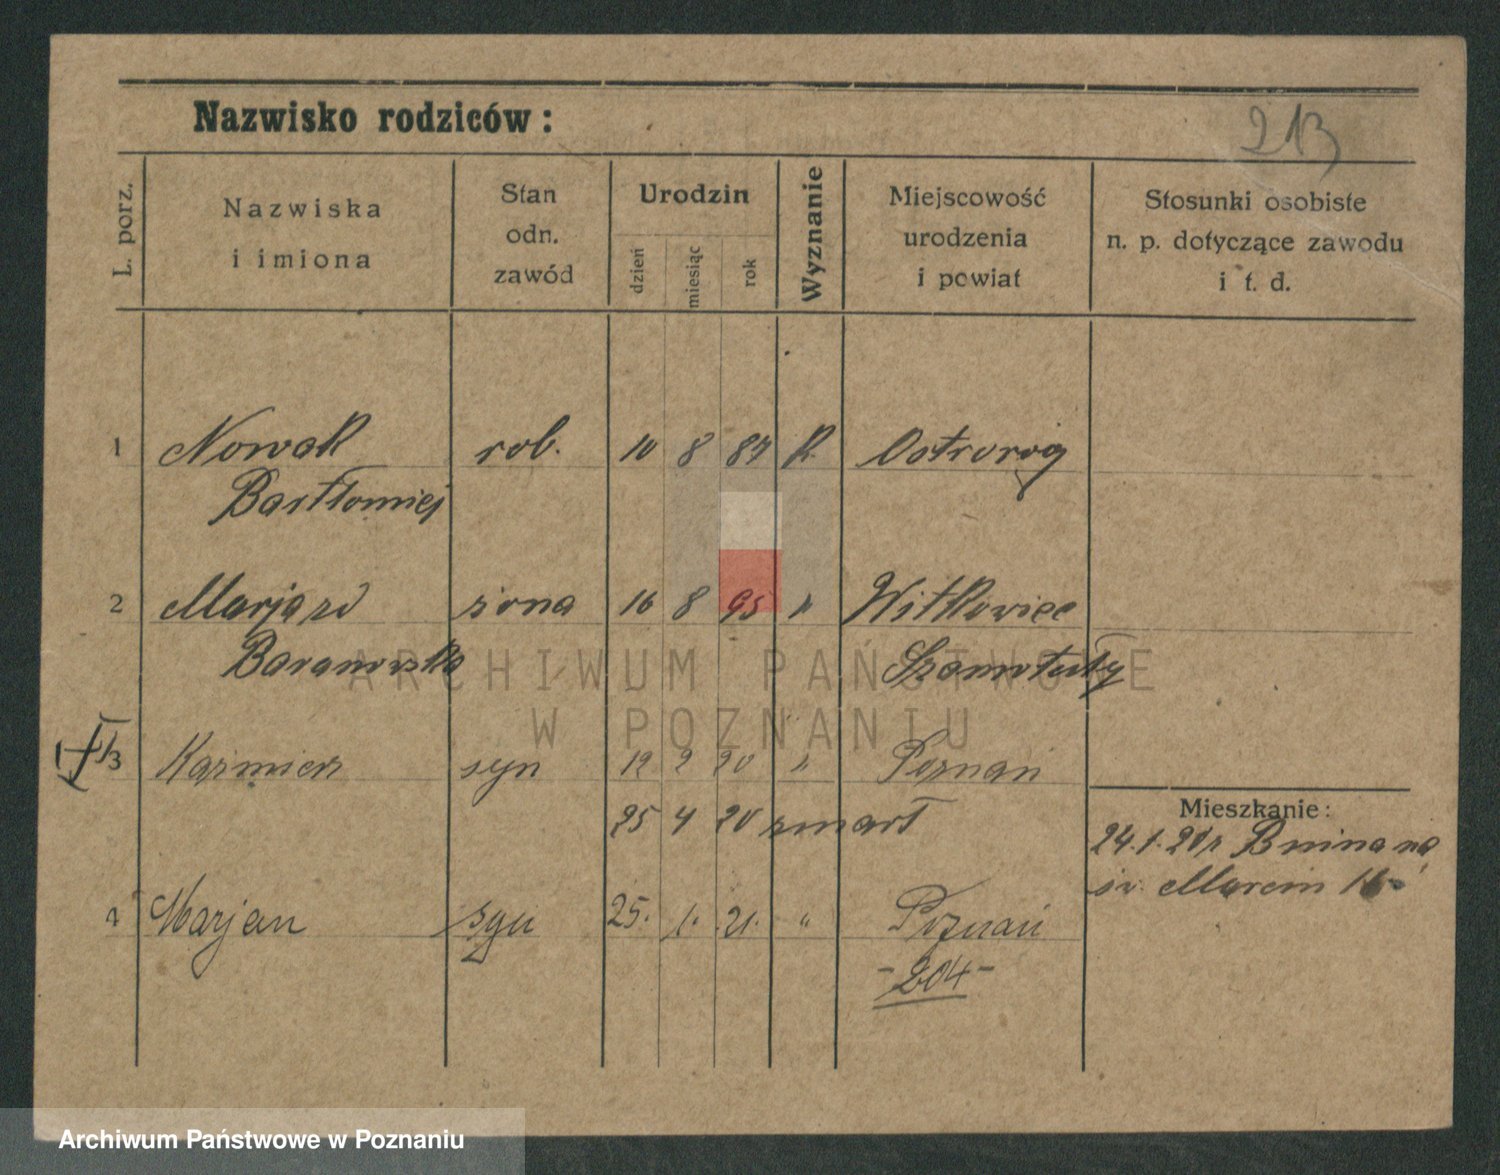 Nazwisko rodziców:
213
L. porz.
Nazwiska
i imiona
Stan
odn.
zawód
Urodzin
dzień
miesiąc
rok
Wyznanie
Miejscowość
urodzenia
i powiat
Stosunki osobiste
n. p. dotyczące zawodu
i t. d.
1 Nowak rob. 10 8 87 R Ostroróg
Bartłomiej
2 Marja zd żona 16 8 95 " Witkowice
Baranowska Szamotuły
3 Kaźmierz syn 19 2 20 " Poznań
25 4 20 zmarł
Mieszkanie:
24.1.21 r Bnina na
św. Marcin
4 Marjan syn 25. 1. 21. " Poznań
-204-
ARCHIWUM PAŃSTWOWE
W POZNANIU
Archiwum Państwowe w Poznaniu